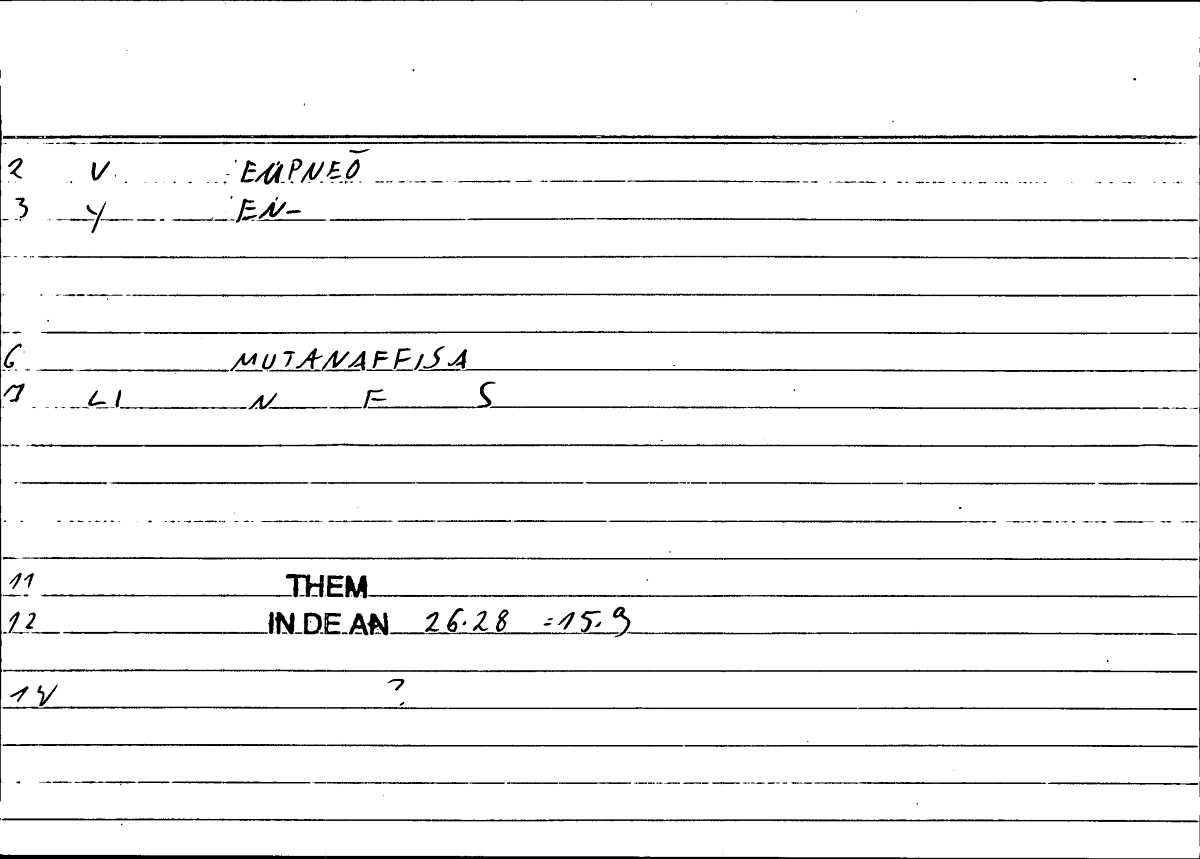 2 V EMPNEŌ
3 Y EN-
6 MUTANAFFISA
7 LI N F S
11 THEM
12 IN DE AN 26.28 =15.9
14 ?